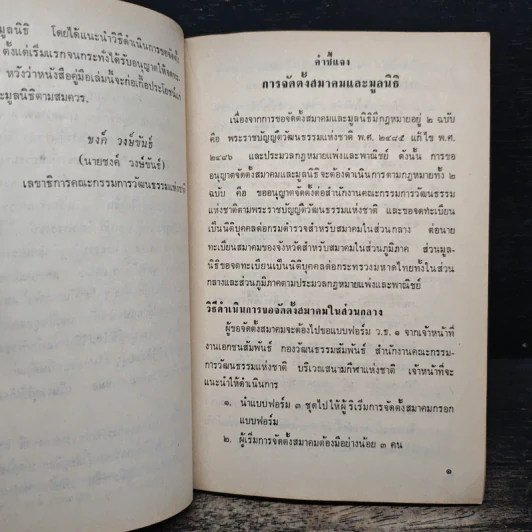 มูลนิธิ โดยได้แนะนำวิธีดำเนินการขอจัดตั้ง
ตั้งแต่เริ่มแรกจนกระทั่งได้รับอนุญาตให้จดทะ
หวังว่าหนังสือคู่มือเล่มนี้จะก่อเกื้อประโยชน์แก่
ะมูลนิธิตามสมควร.
(นายชงค์ วงษ์ขันธ์)
เลขาธิการคณะกรรมการวัฒนธรรมแห่งชาติ
คำชี้แจง
การจัดตั้งสมาคมและมูลนิธิ
เนื่องจากการขอจัดตั้งสมาคมและมูลนิธิมีกฎหมายอยู่ ๒ ฉบับ
คือ พระราชบัญญัติวัฒนธรรมแห่งชาติ พ.ศ. ๒๔๘๕ แก้ไข พ.ศ.
๒๔๘๖ และประมวลกฎหมายแพ่งและพาณิชย์ ดังนั้น การขอ
อนุญาตจัดตั้งสมาคมและมูลนิธิ จะต้องดำเนินการตามกฎหมายทั้ง ๒
ฉบับ คือ ขออนุญาตจัดตั้งต่อสำนักงานคณะกรรมการวัฒนธรรม
แห่งชาติตามพระราชบัญญัติวัฒนธรรมแห่งชาติ และขอจดทะเบียน
เป็นนิติบุคคลต่อกรมตำรวจสำหรับสมาคมในส่วนกลาง ต่อนาย
ทะเบียนสมาคมของจังหวัดสำหรับสมาคมในส่วนภูมิภาค ส่วนมูล-
นิธิขอจดทะเบียนเป็นนิติบุคคลต่อกระทรวงมหาดไทยทั้งในส่วน
กลางและส่วนภูมิภาคตามประมวลกฎหมายแพ่งและพาณิชย์
วิธีดำเนินการขอจัดตั้งสมาคมในส่วนกลาง
ผู้ขอจัดตั้งสมาคมจะต้องไปขอแบบฟอร์ม ว.ธ. ๑ จากเจ้าหน้าที่
งานเอกชนสัมพันธ์ กองวัฒนธรรมสัมพันธ์ สำนักงานคณะกรรม-
การวัฒนธรรมแห่งชาติ บริเวณสนามกีฬาแห่งชาติ เจ้าหน้าที่จะ
แนะนำให้ดำเนินการ
๑. นำแบบฟอร์ม ๓ ชุดไปให้ผู้ริเริ่มการจัดตั้งสมาคมกรอก
แบบฟอร์ม
๒. ผู้เริ่มการจัดตั้งสมาคมต้องมีอย่างน้อย ๓ คน
๑